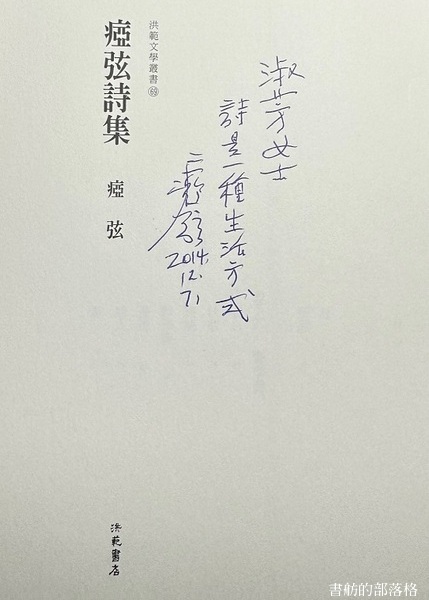 淑芳女士
詩是一種生活方式
2014.
12.
7.
洪範文學叢書
瘂弦詩集
瘂弦
洪範書店
書舫的部落格